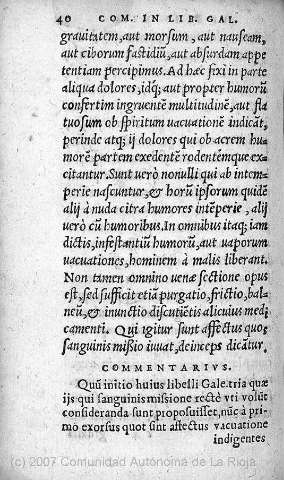 40 COM. IN LIB. GAL.
grauitatem, aut morsum, aut nauseam,
aut ciborum fastidiũ, aut absurdam appe
tentiam percipimus. Ad hæc fixi in parte
aliqua dolores, idq; aut propter humorũ
confertim ingruentẽ multitudinẽ, aut fla
tuosum ob spiritum uacuationẽ indicãt,
perinde atq; ij dolores qui ob acrem hu-
morẽ partem exedentẽ rodentémque ex-
citantur. Sunt verò nonnulli qui ab intem-
perie nascuntur, & horũ ipsorum quidẽ
alij à nuda citra humores intẽperie, alij
verò cũ humoribus. In omnibus itaq; iam
dictis, infestantiũ humorũ, aut uaporum
uacuationes, hominem à malis liberant.
Non tamen omnino uenæ sectione opus
est, sed sufficit etiã purgatio, frictio, bal-
neũ, & inunctio discutiẽtis alicuius medi
camenti. Qui igitur sunt affectus quos
sanguinis missio iuuat, deinceps dicãtur.
COMMENTARIVS.
Quũ initio huius libelli Gale. tria quæ
ijs qui sanguinis missione rectè vti volũt
consideranda sunt proposuisset, nũc à pri-
mo exorsus quot sint affectus vacuatione
indigentes
(c) 2007 Comunidad Autónoma de La Rioja